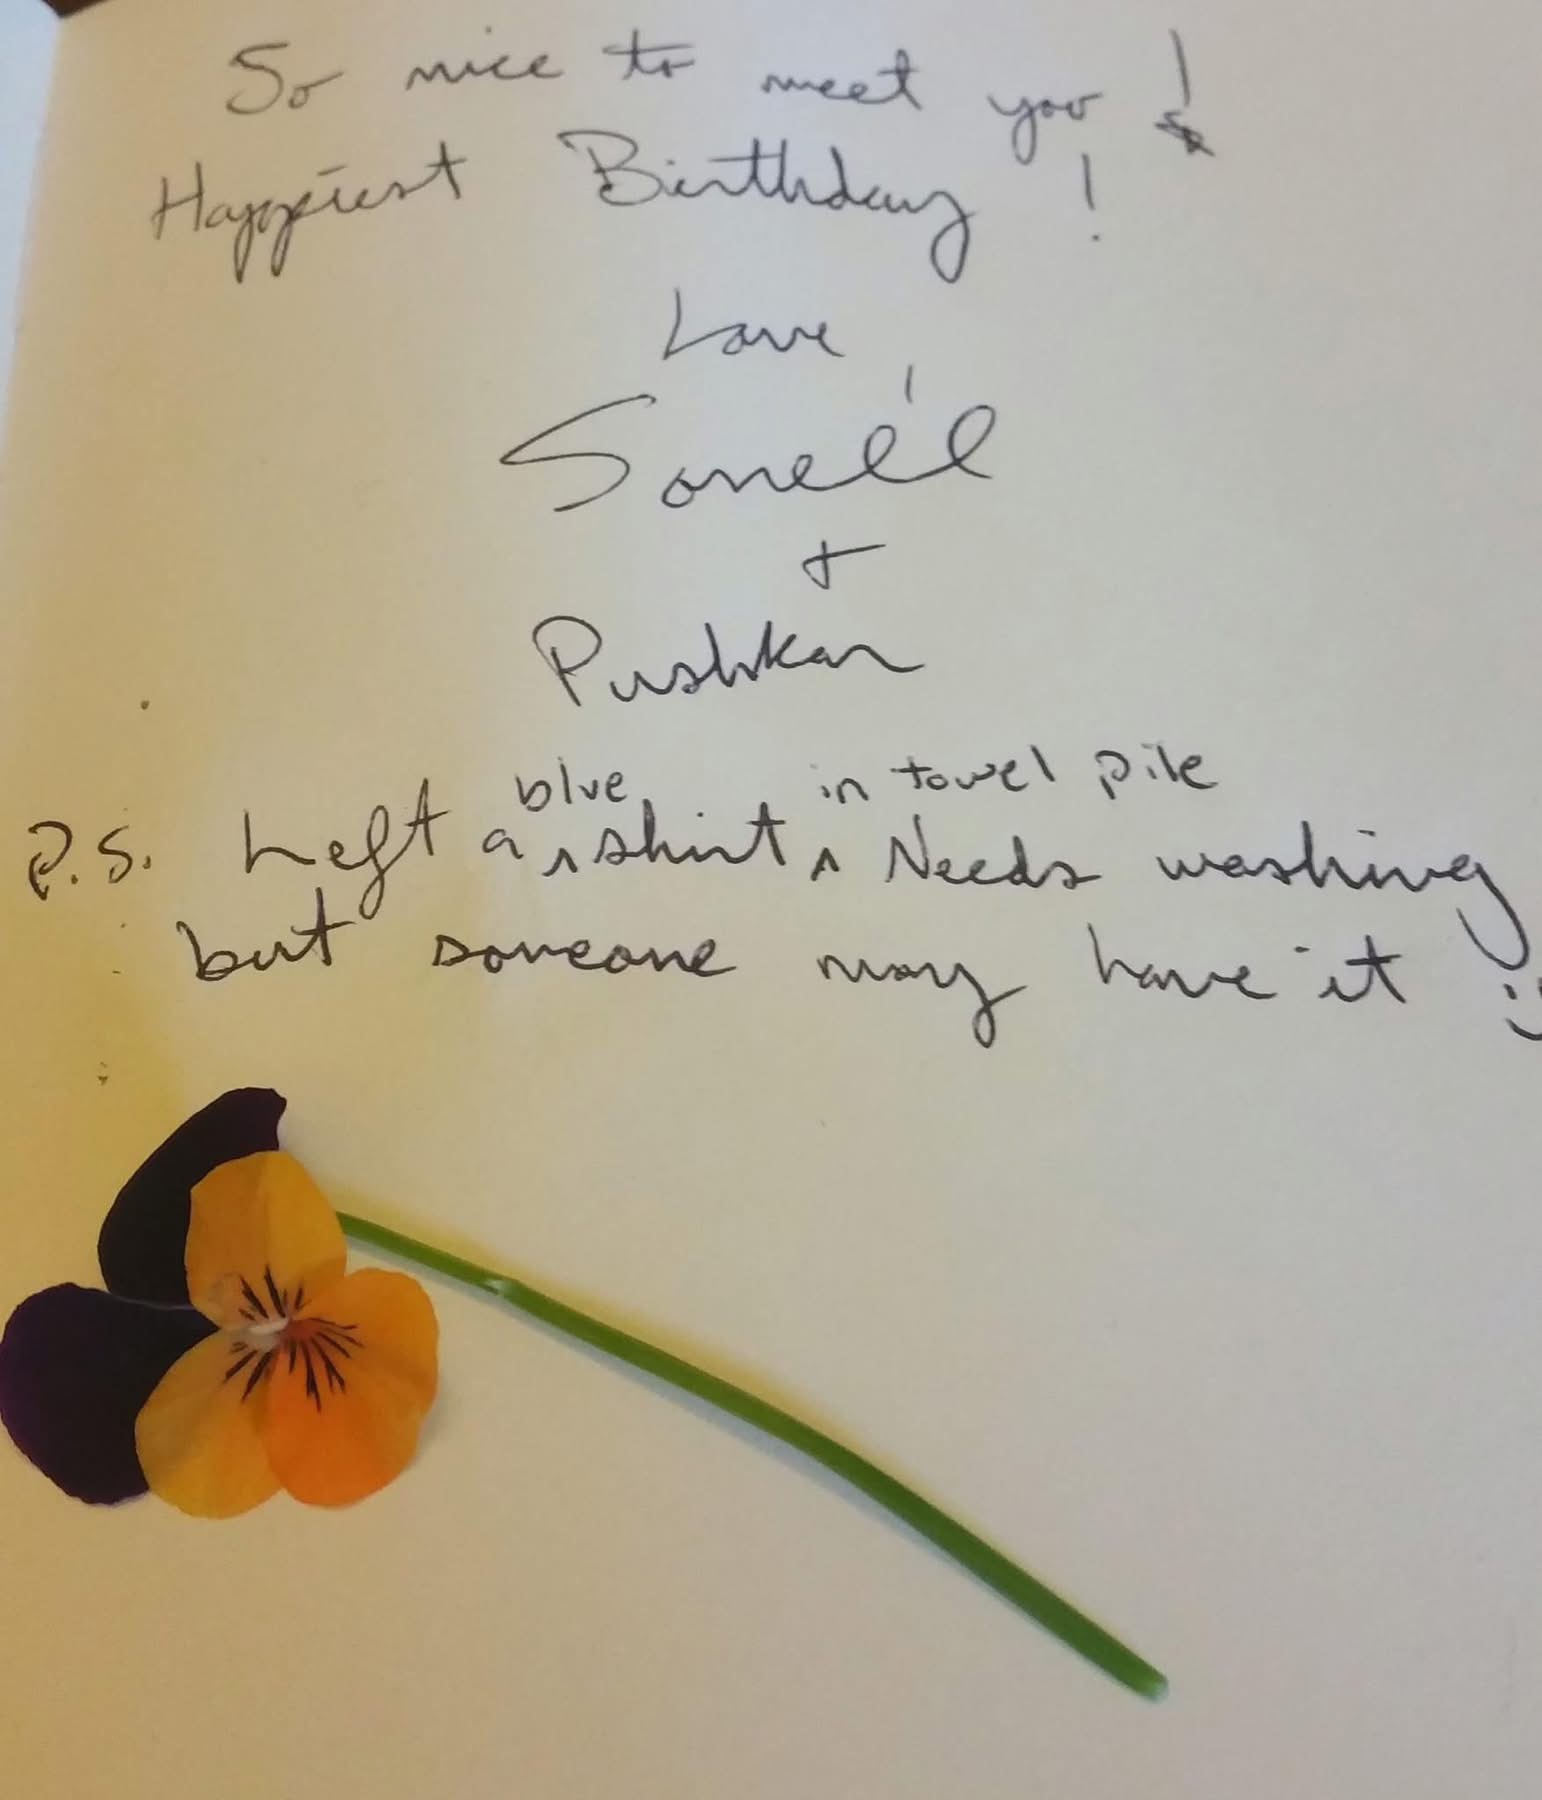 So nice to meet you!
Happiest Birthday!
Love,
Soneé'l
+
Pushkar
P.S. Left a blue shirt in towel pile. Needs washing
but someone may have it :)